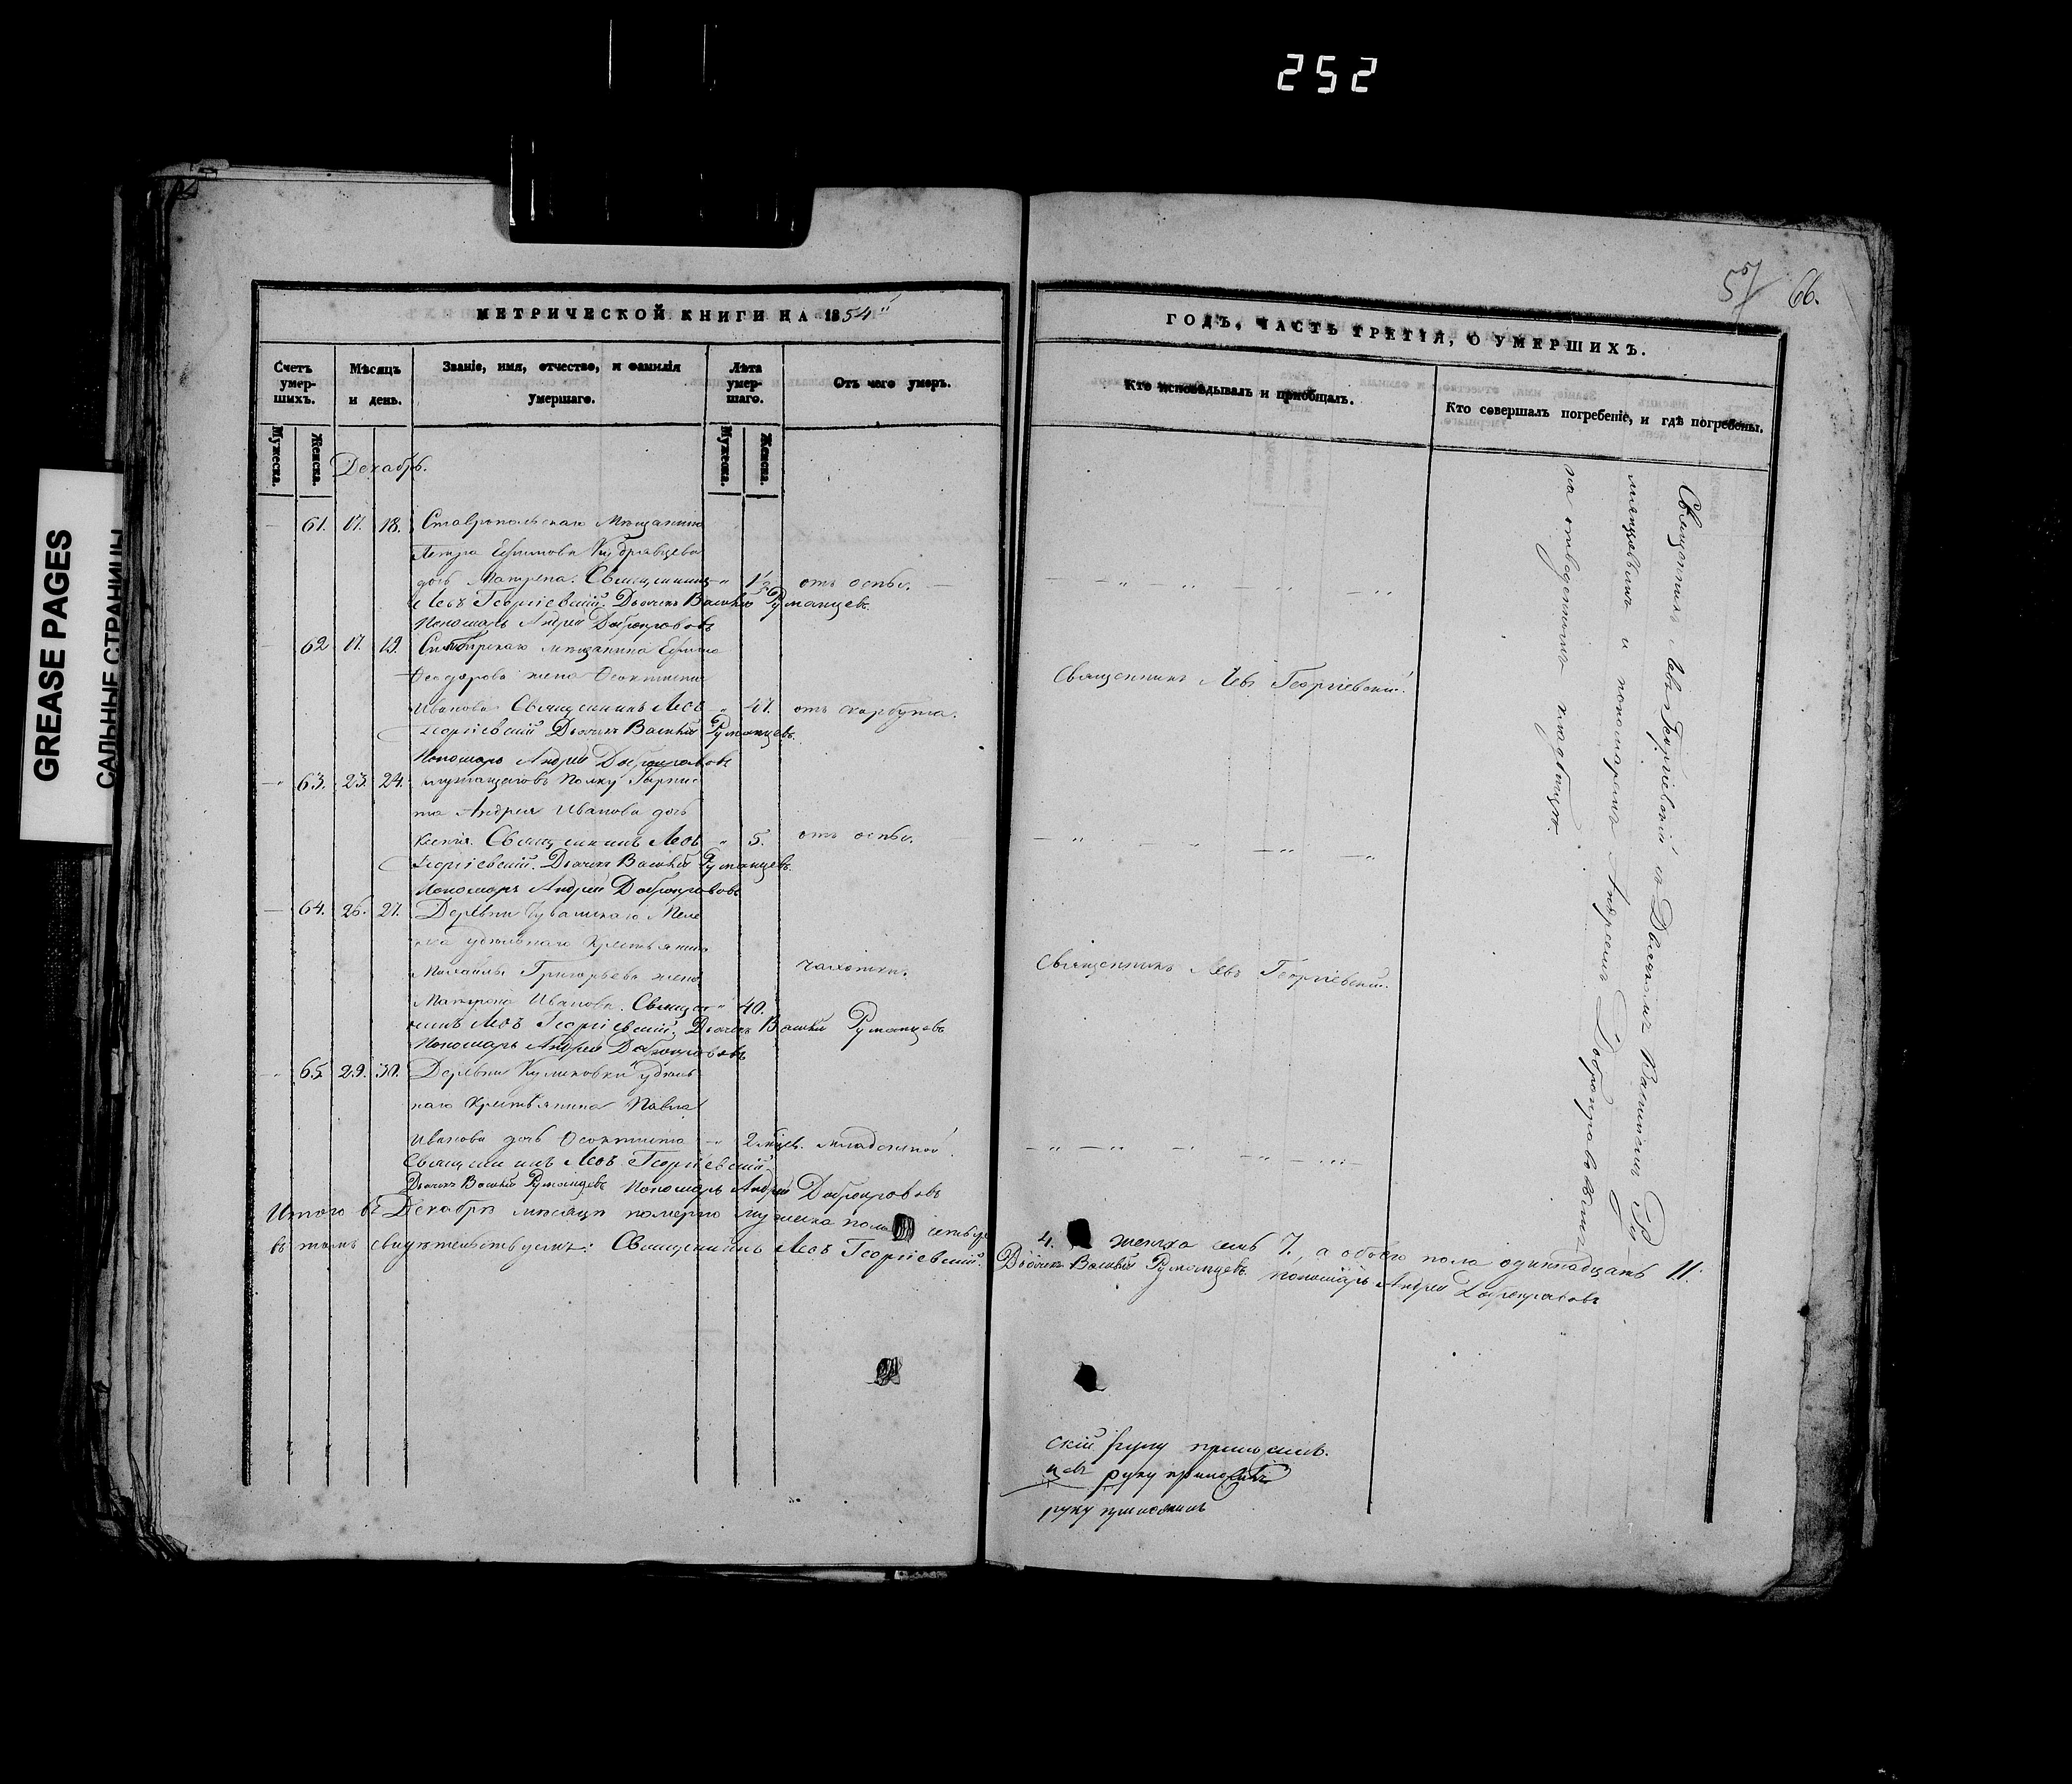 252
GREASE PAGES
САЛЬНЫЕ СТРАНИЦЫ
57 66.
МЕТРИЧЕСКОЙ КНИГИ НА 1854
ГОДЪ, ЧАСТЬ ТРЕТІЯ, О УМЕРШИХЪ.
Счетъ умер-шихъ.
Мѣсяцъ и день.
Званіе, имя, отчество, и фамилія умершаго.
Лѣта умер-шаго.
Отъ чего умеръ.
Кто исповѣдывалъ и пріобщалъ.
Кто совершалъ погребеніе, и гдѣ погребены.
Мужеска. Женска.
Мужеска. Женска.
Декабрь.
61. 17. 18. Ставропольскаго Мѣщанина
Петра Ефимова
дочь Матрена. Священникъ 1 1/2 отъ оспы.
Левъ Георгіевскій. Дьячекъ Василій Румянцевъ
Пономарь Андрей Доброправовъ
62 17. 19. Симбирскаго мѣщанина Ефима
Ѳеодорова жена Ѳеоктиста
Иванова Священникъ Левъ 47. отъ скорбута.
Георгіевскій Дьячекъ Василій Румянцевъ.
Пономарь Андрей Доброправовъ
Священникъ Левъ Георгіевскій.
63. 23. 24.
Андрея Иванова дочь
Ксенія. Священникъ Левъ 5. отъ оспы.
Георгіевскій. Дьячекъ Василій Румянцевъ.
Пономарь Андрей Доброправовъ
64. 26. 27. Деревни Чувашскаго Меле
кеса удѣльнаго Крестьянина
Михайлы Григорьева жена чахотки.
Матрена Иванова. Священ 40.
никъ Левъ Георгіевскій. Дьячекъ Василій Румянцевъ
Пономарь Андрей Доброправовъ
Священникъ Левъ Георгіевскій.
65. 29. 30. Деревни Куликовки удѣль
наго Крестьянина Павла
Иванова дочь Ѳеоктиста 2 мѣс. младенческой
Священникъ Левъ Георгіевскій.
Дьячекъ Василій Румянцевъ Пономарь Андрей Доброправовъ
Итого въ Декабрѣ мѣсяцѣ померло мужеска пола четыре
4. женска семь 7., а обоего пола одиннадцать 11.
въ томъ свидѣтельствуемъ: Священникъ Левъ Георгіевскій.
Дьячекъ Василій Румянцевъ. Пономарь Андрей Доброправовъ
Священникъ Левъ Георгіевскій съ Дьячкомъ Василіемъ Ру
мянцевымъ и пономаремъ Андреемъ Доброправовымъ
на отведенномъ кладбищѣ.
скій руку приложилъ.
цевъ руку приложилъ
руку приложилъ